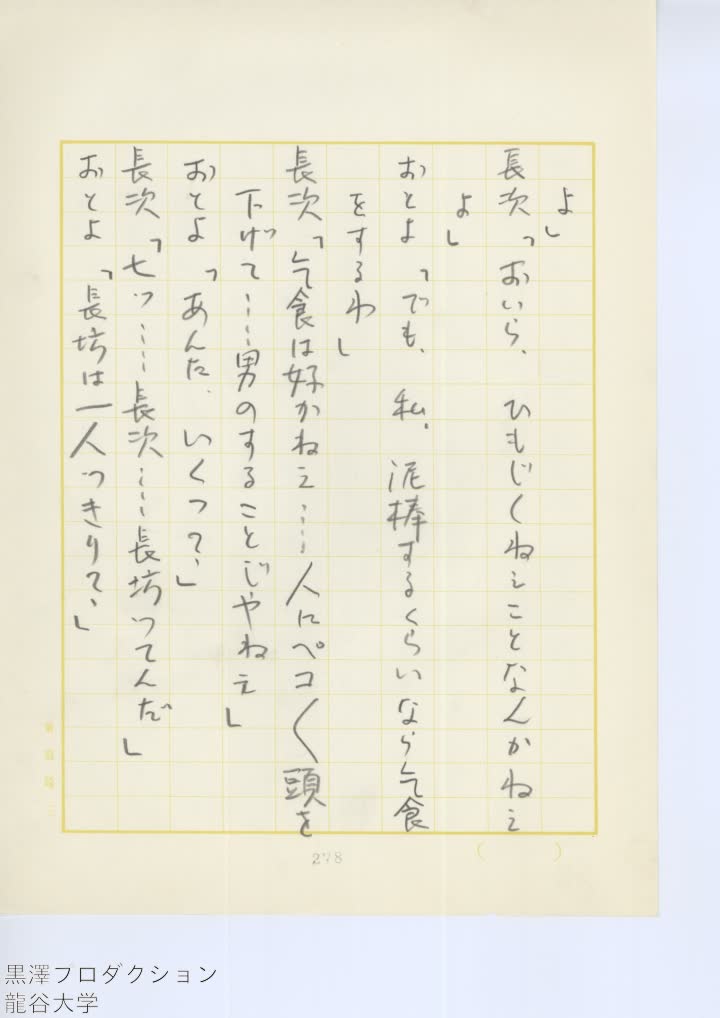 よ」
長次「おいら、ひもじくねえことなんかねえ
よ」
おとよ「でも、私、泥棒するくらいなら乞食
をするわ」
長次「乞食は好かねえ……人にペコ〱頭を
下げて……男のすることじゃねえ」
おとよ「あんた、いくつ?」
長次「七ツ……長次……長坊ってんだ」
おとよ「長坊は一人っきり?」
278
( )
黒澤プロダクション
龍谷大学